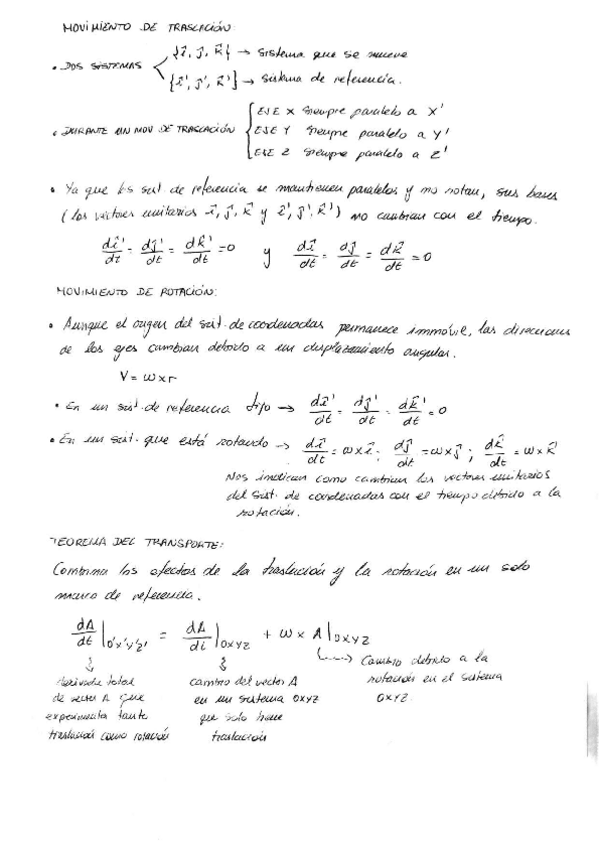 MOVIMIENTO DE TRASLACIÓN:
• DOS SISTEMAS
{i⃗, j⃗, k⃗} → sistema que se mueve
{i⃗', j⃗', k⃗'} → sistema de referencia.
• DURANTE UN MOV. DE TRASLACIÓN
EJE X siempre paralelo a X'
EJE Y siempre paralelo a Y'
EJE Z siempre paralelo a Z'
• Ya que los sist. de referencia se mantienen paralelos y no rotan, sus bases
(los vectores unitarios i⃗, j⃗, k⃗ y i⃗', j⃗', k⃗') no cambian con el tiempo.
di⃗'/dt = dj⃗'/dt = dk⃗'/dt = 0 y di⃗/dt = dj⃗/dt = dk⃗/dt = 0
MOVIMIENTO DE ROTACIÓN:
• Aunque el origen del sist. de coordenadas permanece inmóvil, las direcciones
de los ejes cambian debido a un desplazamiento angular.
V = ω x r
• En un sist. de referencia fijo → di⃗'/dt = dj⃗'/dt = dk⃗'/dt = 0
• En un sist. que está rotando → di⃗/dt = ω x i⃗; dj⃗/dt = ω x j⃗; dk⃗/dt = ω x k⃗
Nos indican como cambian los vectores unitarios
del sist. de coordenadas con el tiempo debido a la
rotación.
TEOREMA DEL TRANSPORTE:
Combina los efectos de la traslación y la rotación en un solo
marco de referencia.
dA/dt |O'x'y'z' = dA/dt |OXYZ + ω x A|OXYZ
derivada total
de vector A que
experimenta tanto
traslación como rotación
cambio del vector A
en un sistema OXYZ
que solo tiene
traslación
Cambio debido a la
rotación en el sistema
OXYZ